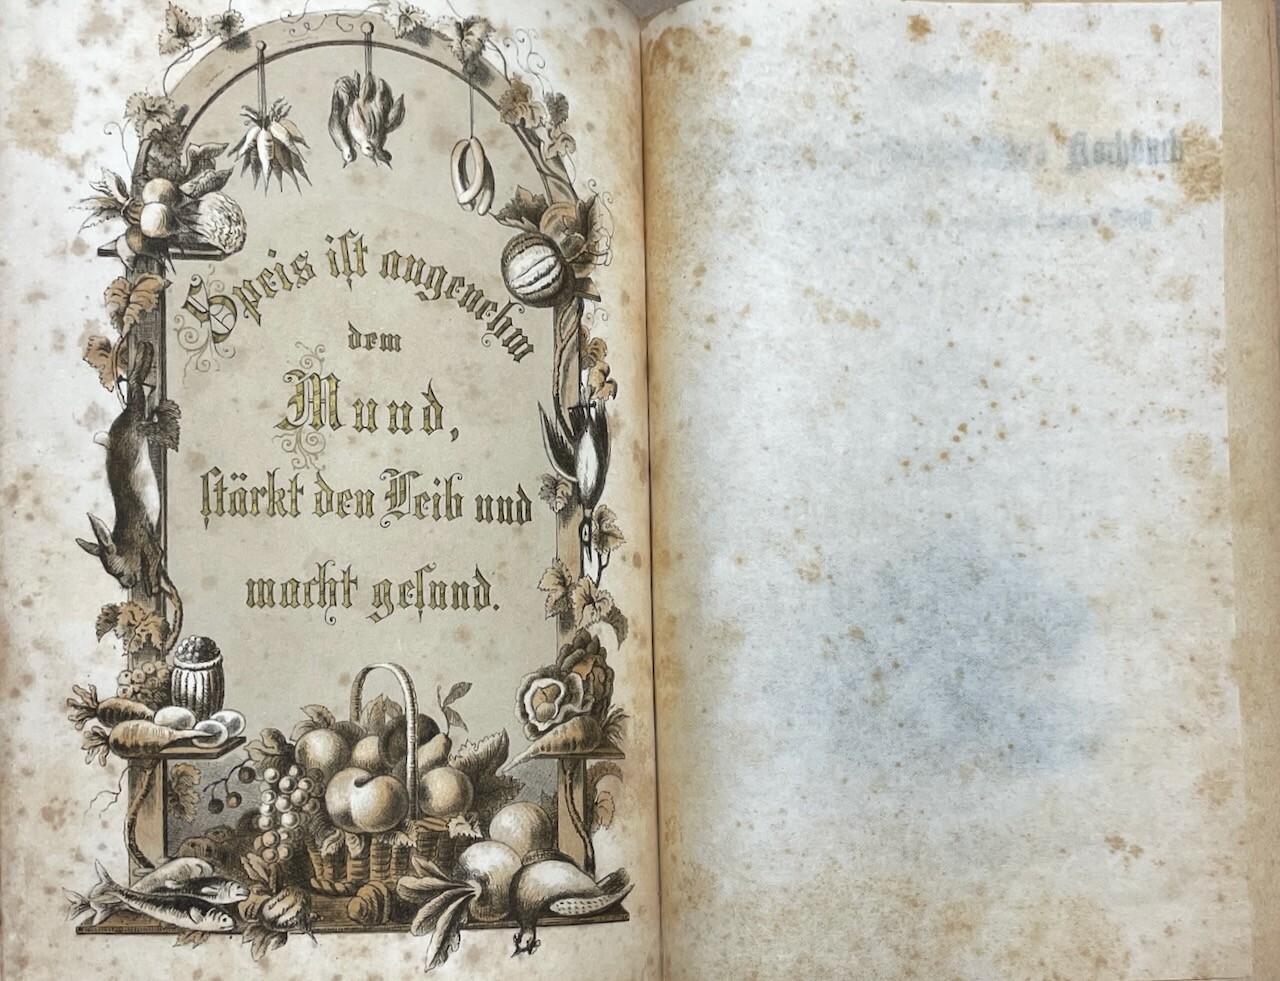 Speis iſt angenehm
dem
Mund,
ſtärkt den Leib und
macht geſund.
Kochbuch